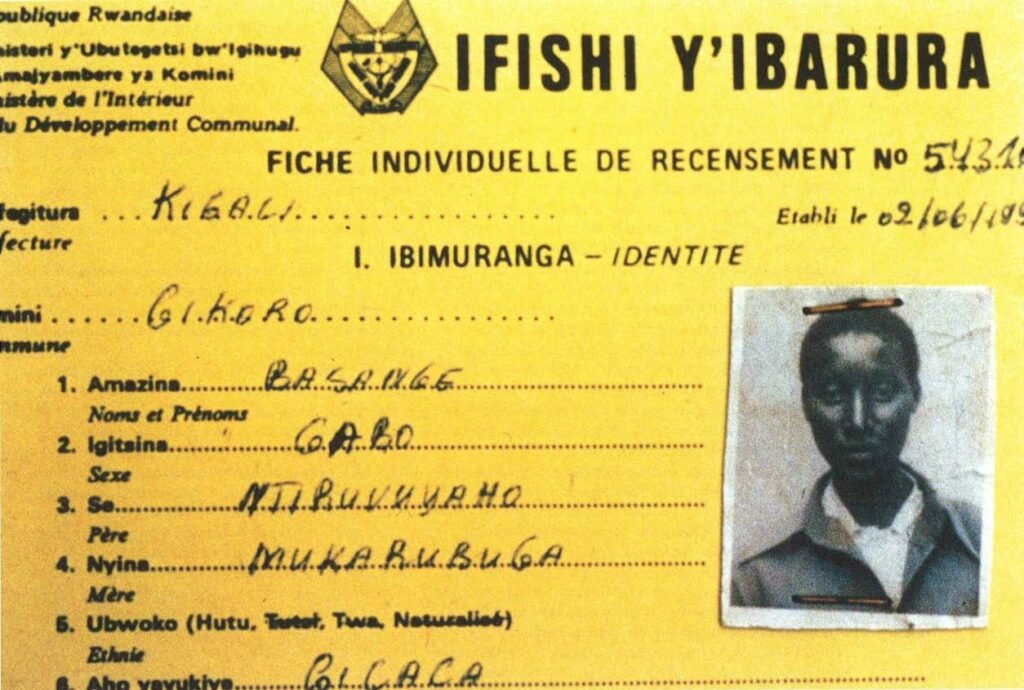 publique Rwandaise
nisteri y'Ubutegetsi bw'Igihugu
Amajyambere ya Komini
nistère de l'Intérieur
du Développement Communal.
IFISHI Y'IBARURA
FICHE INDIVIDUELLE DE RECENSEMENT No
fegitura ... KIGALI
fecture
Etabli le 02/06/199
I. IBIMURANGA – IDENTITE
mini ...... GIKORO
mmune
1. Amazina...... BASANGE
Noms et Prénoms
2. Igitsina...... GABO
Sexe
3. Se...... NTIRUVUYAHO
Père
4. Nyina...... MUKARUBUGA
Mère
5. Ubwoko (Hutu, Tutsi, Twa, Naturalisé)
Ethnie
6. Aho yavukiye...... GICACA